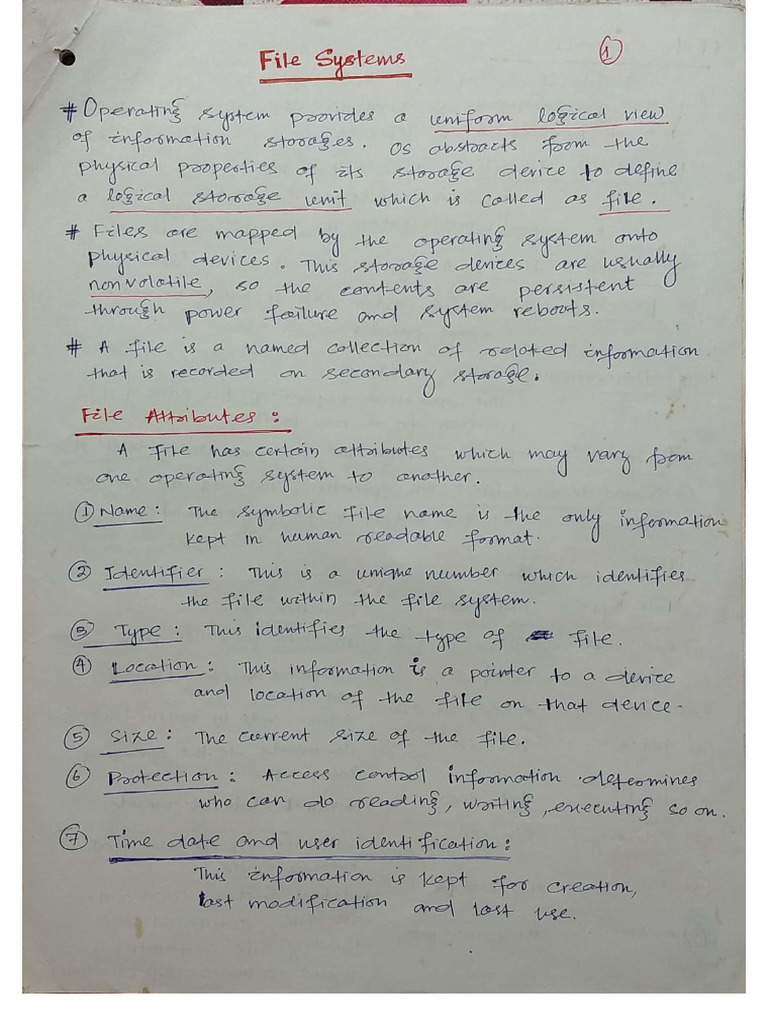 File Systems
1
# Operating system provides a uniform logical view
of information storages. OS abstracts from the
physical properties of its storage device to define
a logical storage unit which is called as file.
# Files are mapped by the operating system onto
physical devices. This storage devices are usually
nonvolatile, so the contents are persistent
through power failure and system reboots.
# A file is a named collection of related information
that is recorded on secondary storage.
File Attributes :
A file has certain attributes which may vary from
one operating system to another.
① Name : The symbolic file name is the only information
kept in human readable format.
② Identifier : This is a unique number which identifies
the file within the file system.
③ Type : This identifies the type of file.
④ Location : This information is a pointer to a device
and location of the file on that device.
⑤ Size : The current size of the file.
⑥ Protection : Access control information determines
who can do reading, writing, executing so on.
⑦ Time date and user identification :
This information is kept for creation,
last modification and last use.